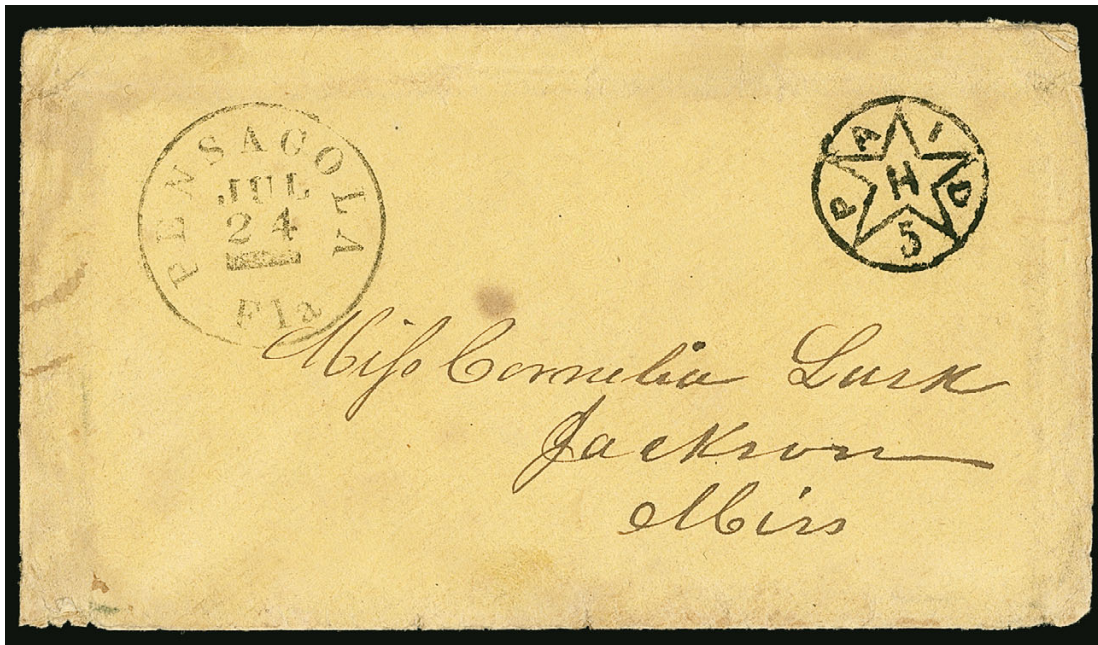 PENSACOLA
JUL
24
Fla
PAID
H
5
Miſs Cornelia Lusk
Jackson
Miss